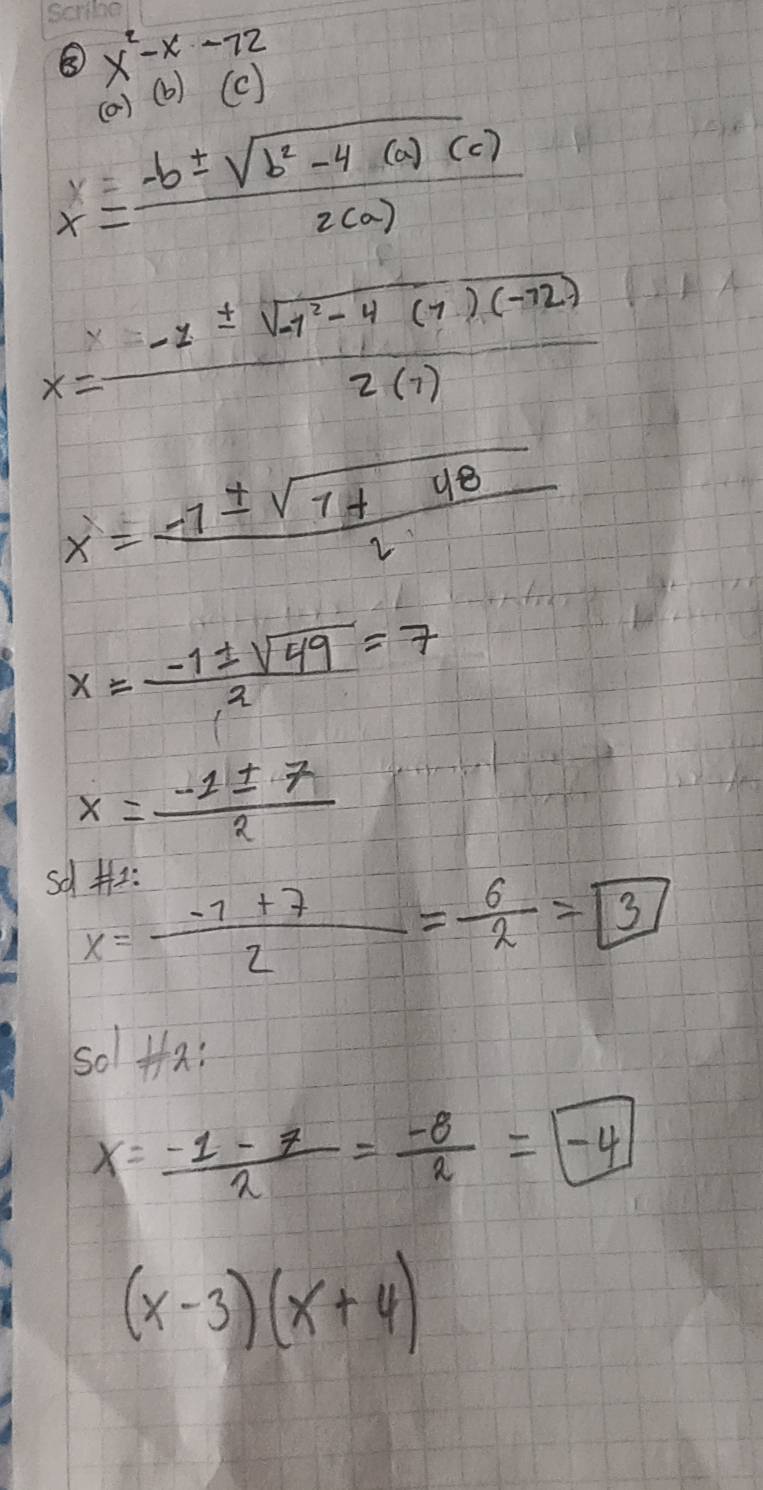 Scribe
③ x² - x - 12
(a) (b) (c)
x = -b ± √b² - 4 (a) (c)
2(a)
x = -1 ± √-1² - 4 (1) (-12)
2(1)
x = -1 ± √1 + 48
2
x = -1 ± √49 = 7
2
x = -1 ± 7
2
Sol #1:
x = -1 + 7 = 6 = 3
2 2
Sol #2:
x = -1 - 7 = -8 = -4
2 2
(x - 3)(x + 4)